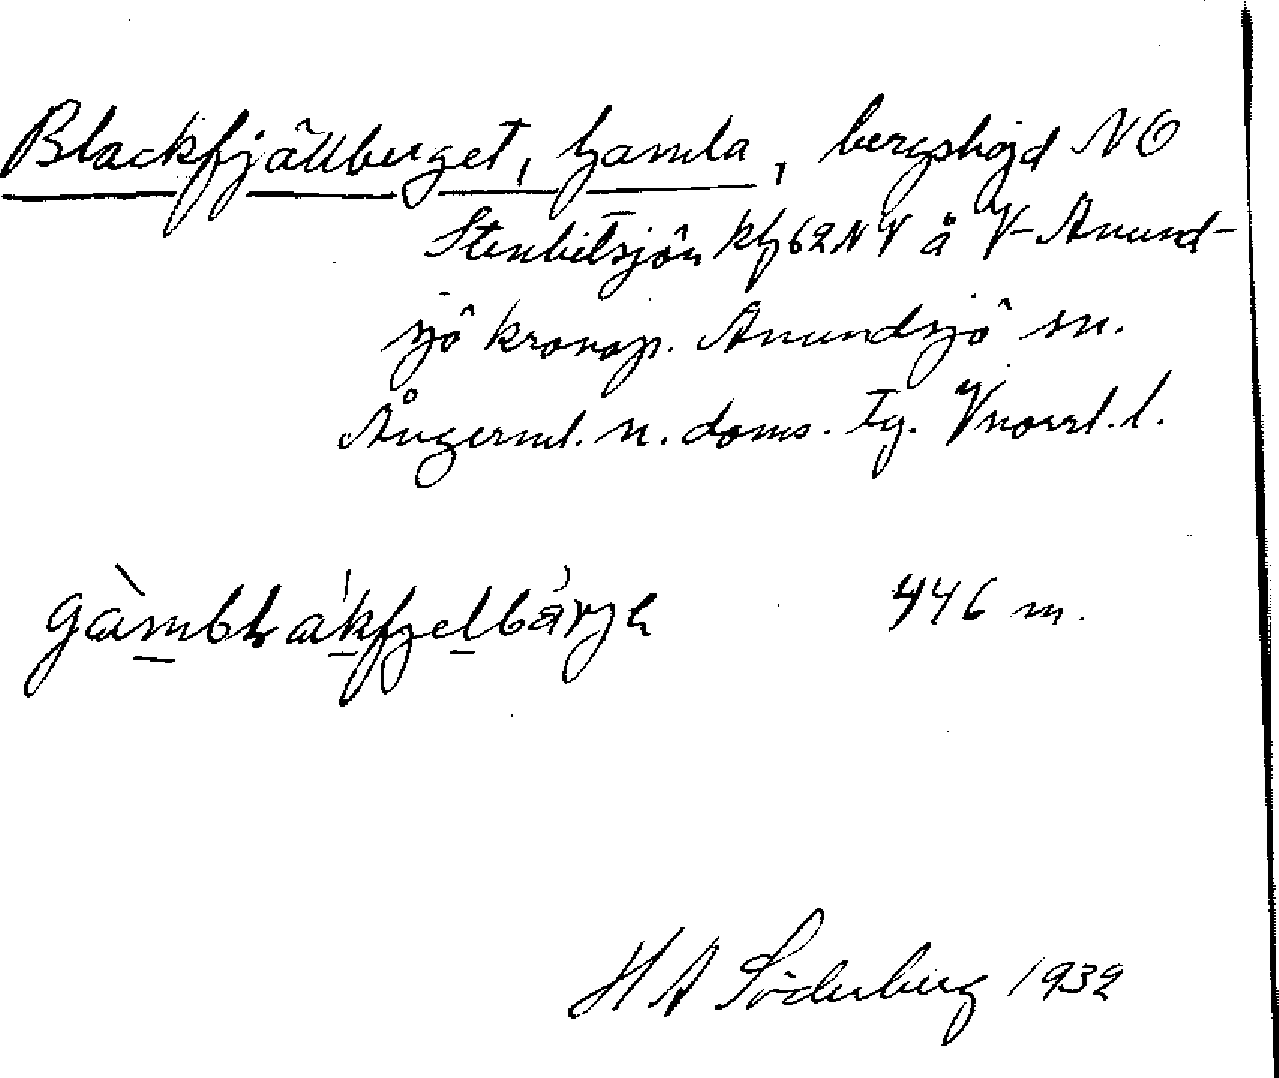 Blackfjällberget, Gamla, bergshöjd NO
Stenbitsjön kbf 62 NV å V-Anund-
sjö kronop. Anundsjö sn.
Ångerml. n. doms. tg. Vnorrl. l.
446 m.
H A Söderberg 1932